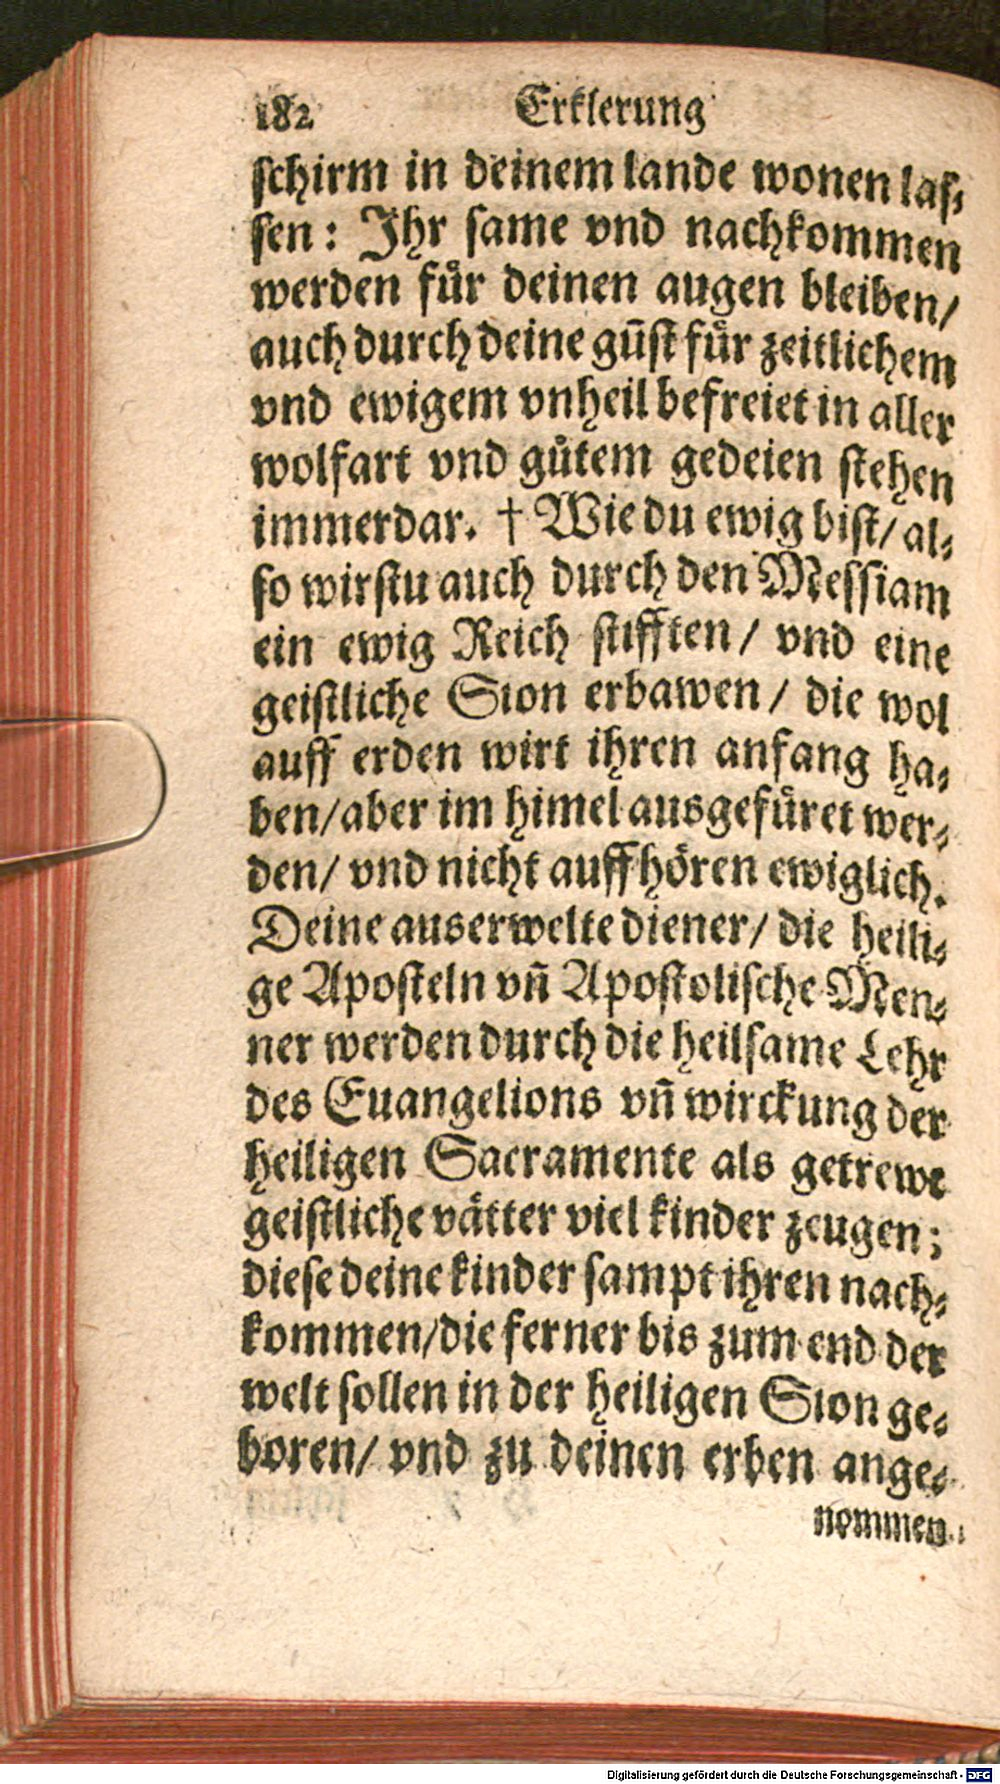 182 Erklerung
schirm in deinem lande wonen las⸗
sen: Ihr same vnd nachkommen
werden fuͤr deinen augen bleiben/
auch durch deine gūst fuͤr zeitlichem
vnd ewigem vnheil befreiet in aller
wolfart vnd guͤtem gedeien stehen
immerdar. † Wie du ewig bist/ al⸗
so wirstu auch durch den Messiam
ein ewig Reich stifften/ vnd eine
geistliche Sion erbawen/ die wol
auff erden wirt ihren anfang ha⸗
ben/aber im himel ausgefuͤret wer⸗
den/ vnd nicht auffhoͤren ewiglich.
Deine auserwelte diener/ die heili⸗
ge Aposteln vn̄ Apostolische Men⸗
ner werden durch die heilsame Lehr
des Euangelions vn̄ wirckung der
heiligen Sacramente als getrewe
geistliche vaͤtter viel kinder zeugen;
diese deine kinder sampt ihren nach⸗
kommen/die ferner bis zum end der
welt sollen in der heiligen Sion ge⸗
boren/ vnd zu deinen erben ange⸗
nommen
Digitalisierung gefördert durch die Deutsche Forschungsgemeinschaft - DFG